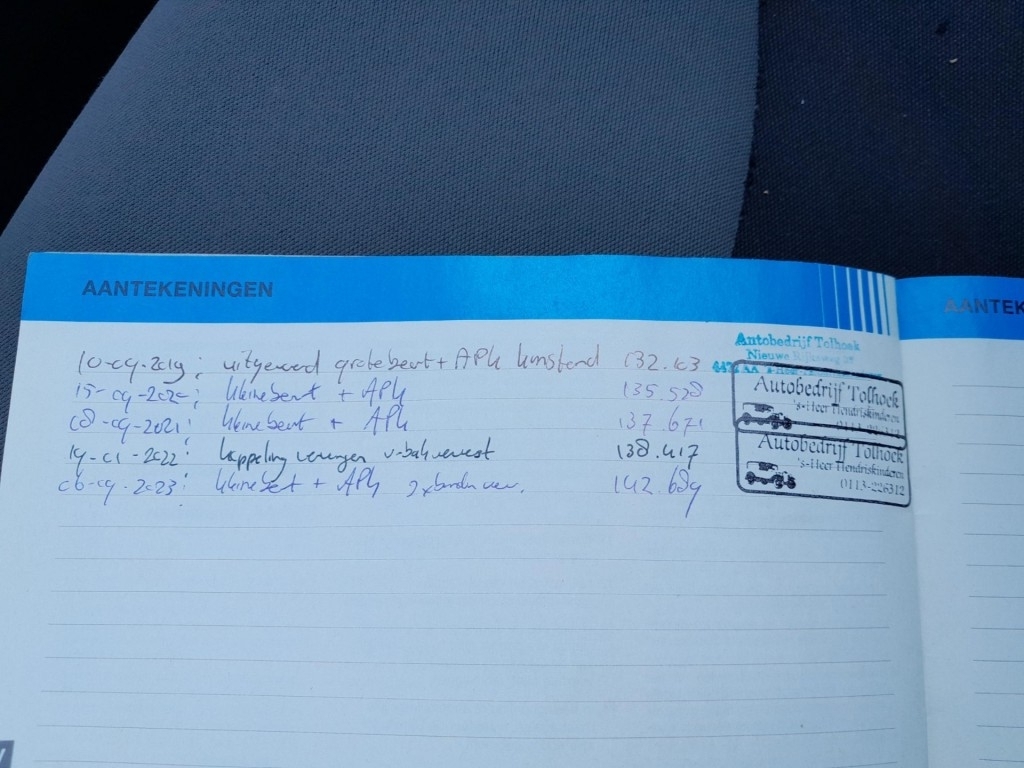 AANTEKENINGEN
AANTEK
10-09-2019; uitgevoerd grote beurt + APK kmstand 132.103
15-09-2020; kleine beurt + APK 135.528
08-09-2021: kleine beurt + APK 137.671
19-01-2022: koppeling vervangen v-bak ververst 138.417
06-09-2023: kleine beurt + APK 2x banden ver. 142.689
Autobedrijf Tolhoek
Nieuwe Rijksweg
Autobedrijf Tolhoek
's-Heer Hendrikskinderen
Autobedrijf Tolhoek
's-Heer Hendrikskinderen
0113-226312